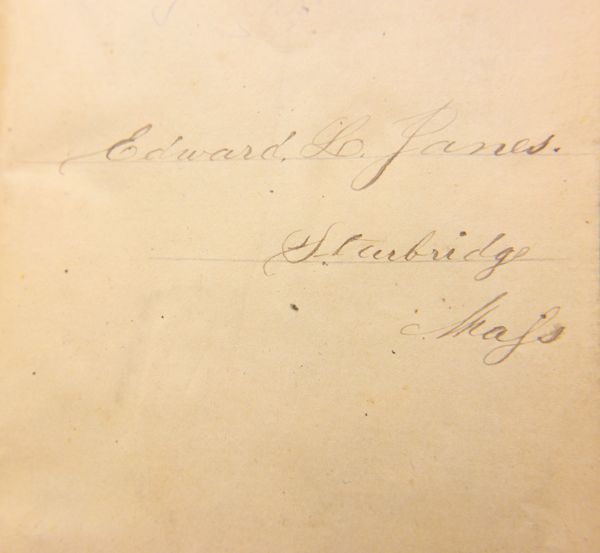 Edward. L. Janes.
Sturbridge
Mass